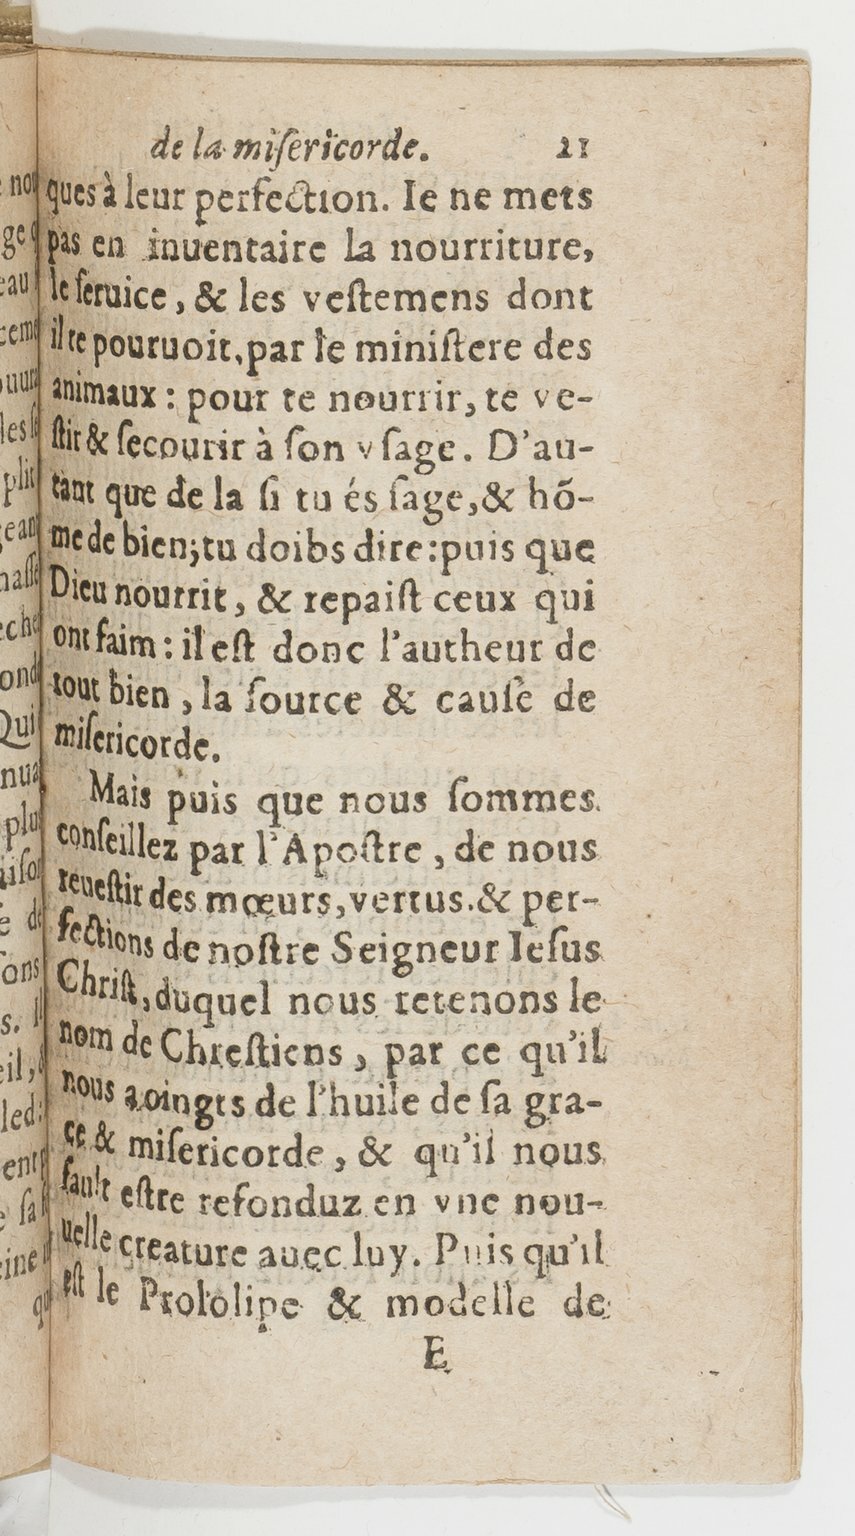 de la miſericorde. 21
ques à leur perfection. Ie ne mets
pas en inuentaire la nourriture,
le ſeruice, & les veſtemens dont
il te pouruoit, par le miniſtere des
animaux : pour te nourrir, te ve-
ſtir & ſecourir à ſon vſage. D'au-
tant que de la ſi tu és ſage, & hõ-
me de bien; tu doibs dire: puis que
Dieu nourrit, & repaiſt ceux qui
ont faim : il eſt donc l'autheur de
tout bien, la ſource & cauſe de
miſericorde.
Mais puis que nous ſommes
conſeillez par l'Apoſtre, de nous
reueſtir des mœurs, vertus. & per-
fections de noſtre Seigneur Ieſus
Chriſt, duquel nous retenons le
nom de Chreſtiens, par ce qu'il
nous a oingts de l'huile de ſa gra-
ce & miſericorde, & qu'il nous
fault eſtre refonduz en vne nou-
uelle creature auec luy. Puis qu'il
eſt le Prololipe & modelle de
E